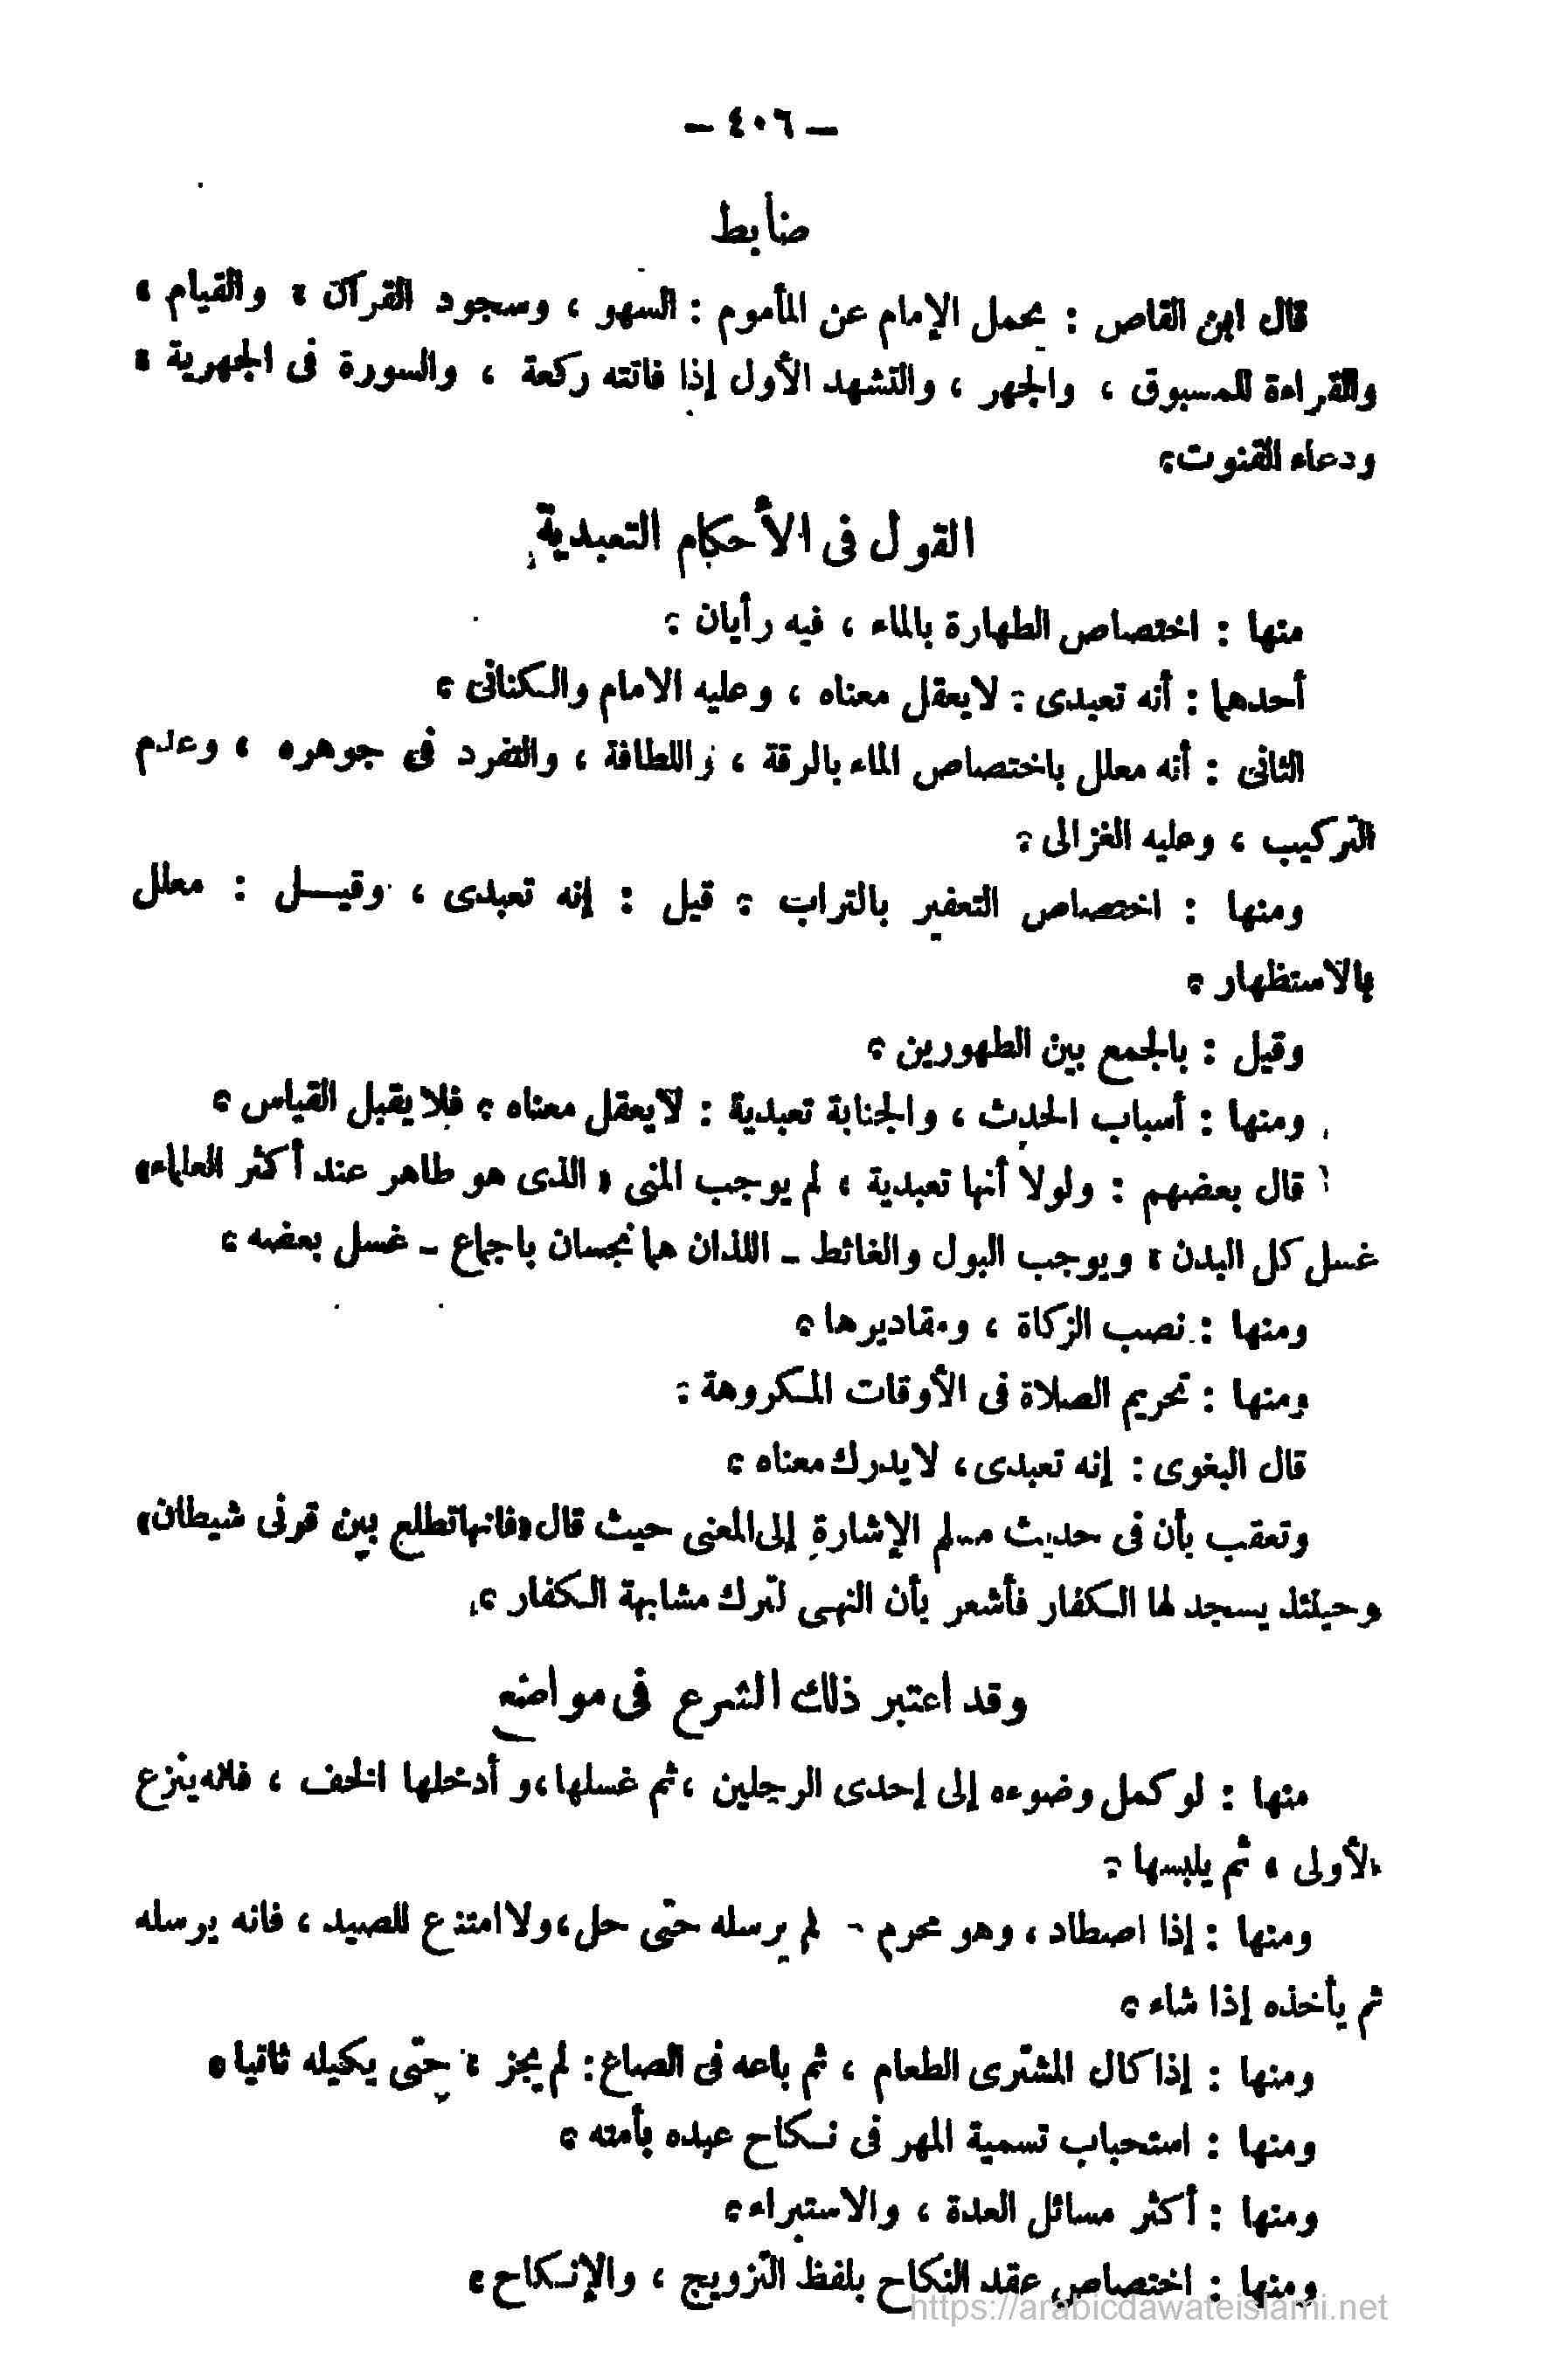 — ٤٠٦ —
ضابط
قال ابن القاص : يحمل الإمام عن المأموم : السهو ، وسجود القرآن ، والقيام ،
والقراءة للمسبوق ، والجهر ، والتشهد الأول إذا فاتته ركعة ، والسورة فى الجهرية ،
ودعاء القنوت.
القول فى الأحكام التعبدية
منها : اختصاص الطهارة بالماء ، فيه رأيان :
أحدهما : أنه تعبدى : لايعقل معناه ، وعليه الامام والكنانى .
الثانى : أنه معلل باختصاص الماء بالرقة ، واللطافة ، والتفرد فى جوهره ، وعدم
التركيب ، وعليه الغزالى .
ومنها : اختصاص التعفير بالتراب . قيل : إنه تعبدى ، وقيل : معلل
بالاستظهار .
وقيل : بالجمع بين الطهورين .
ومنها : أسباب الحدث ، والجنابة تعبدية : لايعقل معناه . فلا يقبل القياس .
قال بعضهم : ولولا أنها تعبدية ، لم يوجب المنى « الذى هو طاهر عند أكثر العلماء»
غسل كل البدن ، ويوجب البول والغائط - اللذان هما نجسان باجماع - غسل بعضه .
ومنها : نصب الزكاة ، ومقاديرها .
ومنها : تحريم الصلاة فى الأوقات المكروهة :
قال البغوى : إنه تعبدى ، لايدرك معناه .
وتعقب بأن فى حديث مسلم الإشارة إلى المعنى حيث قال «فانها تطلع بين قرنى شيطان»
وحينئذ يسجد لها الكفار فأشعر بأن النهى لترك مشابهة الكفار .
وقد اعتبر ذلك الشرع فى مواضع
منها : لو كمل وضوءه إلى إحدى الرجلين ، ثم غسلها ، و أدخلها الخف ، فلانه ينزع
الأولى ، ثم يلبسها .
ومنها : إذا اصطاد ، وهو محرم - لم يرسله حتى حل ، ولا امتنع للصيد ، فانه يرسله
ثم يأخذه إذا شاء .
ومنها : إذا كال المشترى الطعام ، ثم باعه فى الصاع : لم يجز ، حتى يكيله ثانيا .
ومنها : استحباب تسمية المهر فى نكاح عبده بأمته .
ومنها : أكثر مسائل العدة ، والاستبراء .
ومنها : اختصاص عقد النكاح بلفظ التزويج ، والإنكاح .
https://arabicdawateislami.net